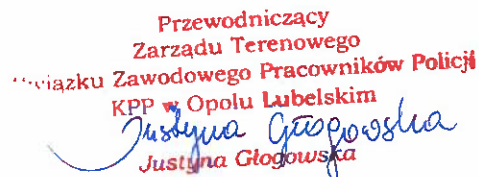 Przewodniczący
Zarządu Terenowego
Związku Zawodowego Pracowników Policji
KPP w Opolu Lubelskim
Justyna Głogowska
Justyna Głogowska